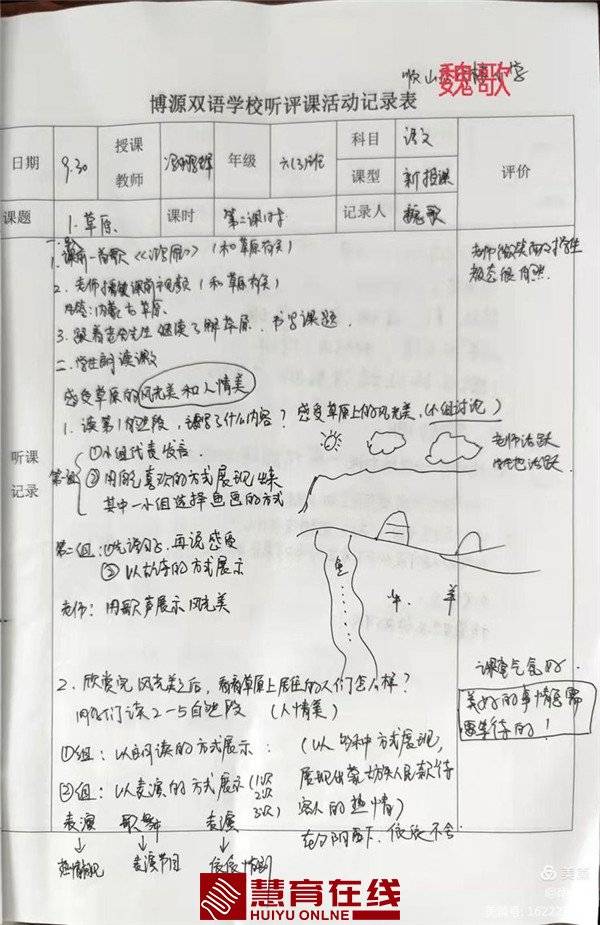 魏歌
博源双语学校听评课活动记录表
日期 9.30 授课教师 年级 六(3)班 科目 语文 评价
课型 新授课
课题 1.草原 课时 第二课时 记录人 魏歌
1. 课前一首歌 (和草原有关)
2. 老师播放课前视频 (和草原有关)
内蒙古草原
3. 跟着老舍先生继续了解草原. 书写课题.
二. 学生朗读课文
感受草原的风光美和人情美
1. 读第1自然段, 读写了什么内容? 感受草原上的风光美, (小组讨论)
听课记录
第一组
①小组代表发言.
②用自己喜欢的方式展现出来
其中一小组选择画画的方式
老师活跃
学生也活跃
第二组: 再说感受
以 的方式展示
老师: 用歌声展示风光美
鱼
牛. 羊
课堂气氛好.
2. 欣赏完风光美之后, 看看草原上居住的人们怎么样?
同学们读2-5自然段 (人情美)
美好的事情是需要等待的!
①组: 以朗读的方式展示:
(以多种方式展现,
②组: 以表演的方式展示
展现出蒙古族人民款待
客人的热情)
表演 歌舞 表演
在夕阳西下, 依依不舍
表演节目 依依惜别
慧育在线
HUIYU ONLINE